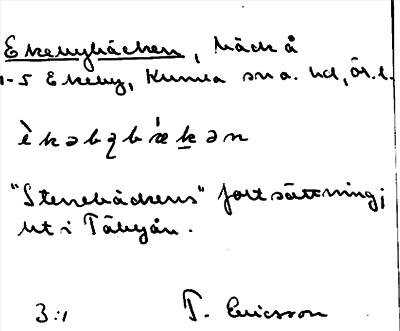 Ekebybäcken, bäck å
1-5 Ekeby, Kumla sn o. hd, ör. l.
èkəbɣbǽkən
"Stenebäckens" fortsättning;
ut i Täbyån.
3:1 T. Ericsson